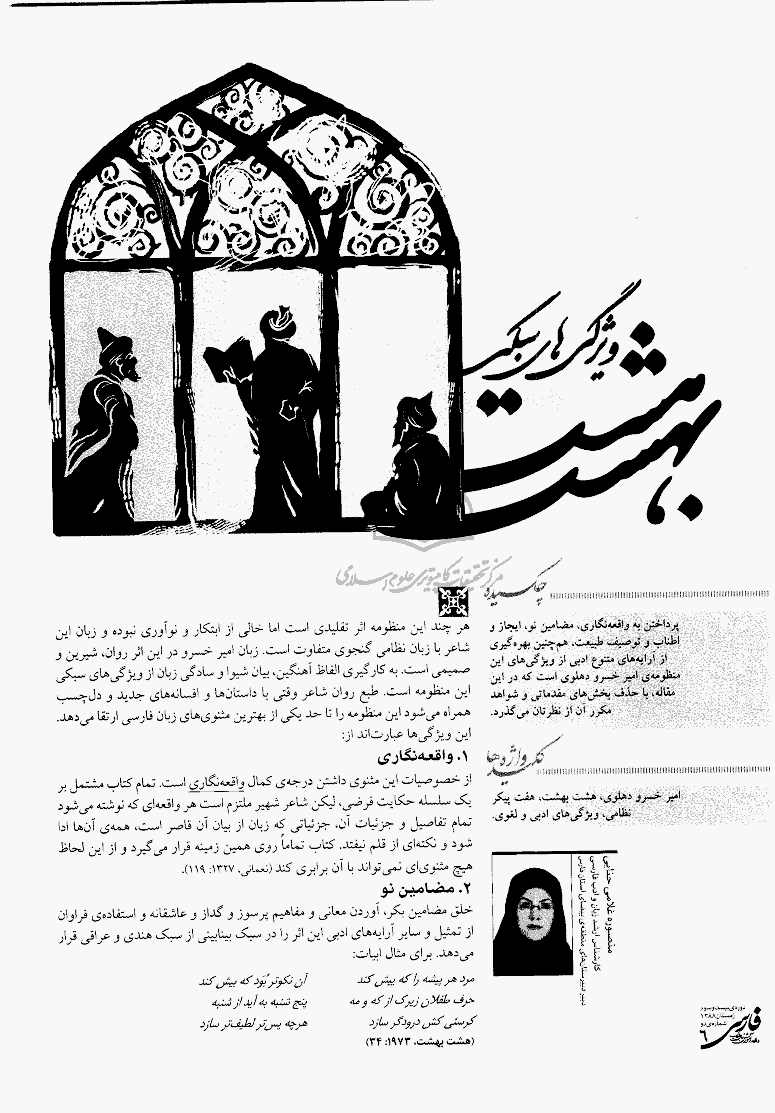 ویژگی‌های سبکی
هشت بهشت
مرکز تحقیقات کامپیوتری علوم اسلامی
چکیده
پرداختن به واقعه‌نگاری، مضامین نو، ایجاز و
اطناب و توصیف طبیعت، هم‌چنین بهره‌گیری
از آرایه‌های متنوع ادبی از ویژگی‌های این
منظومه‌ی امیر خسرو دهلوی است که در این
مقاله، با حذف بخش‌های مقدماتی و شواهد
مکرر آن از نظرتان می‌گذرد.
کلید واژه‌ها
امیر خسرو دهلوی، هشت بهشت، هفت پیکر
نظامی، ویژگی‌های ادبی و لغوی.
منصوره غلامی حنایی
کارشناس ارشد زبان و ادب فارسی
دبیر دبیرستان‌های منطقه‌ی بیضای استان فارس
هر چند این منظومه اثر تقلیدی است اما خالی از ابتکار و نوآوری نبوده و زبان این
شاعر با زبان نظامی گنجوی متفاوت است. زبان امیر خسرو در این اثر روان، شیرین و
صمیمی است. به کارگیری الفاظ آهنگین، بیان شیوا و سادگی زبان از ویژگی‌های سبکی
این منظومه است. طبع روان شاعر وقتی با داستان‌ها و افسانه‌های جدید و دل‌چسب
همراه می‌شود این منظومه را تا حد یکی از بهترین مثنوی‌های زبان فارسی ارتقا می‌دهد.
این ویژگی‌ها عبارت‌اند از:
۱. واقعه‌نگاری
از خصوصیات این مثنوی داشتن درجه‌ی کمال واقعه‌نگاری است. تمام کتاب مشتمل بر
یک سلسله حکایت فرضی، لیکن شاعر شهیر ملتزم است هر واقعه‌ای که نوشته می‌شود
تمام تفاصیل و جزئیات آن، جزئیاتی که زبان از بیان آن قاصر است، همه‌ی آن‌ها ادا
شود و نکته‌ای از قلم نیفتد. کتاب تماماً روی همین زمینه قرار می‌گیرد و از این لحاظ
هیچ مثنوی‌ای نمی‌تواند با آن برابری کند (نعمانی، ۱۳۲۷: ۱۱۹).
۲. مضامین نو
خلق مضامین بکر، آوردن معانی و مفاهیم پرسوز و گداز و عاشقانه و استفاده‌ی فراوان
از تمثیل و سایر آرایه‌های ادبی این اثر را در سبک بینابینی از سبک هندی و عراقی قرار
می‌دهد. برای مثال ابیات:
مرد هر پیشه را که پیش کند آن نکوتر بُود که بیش کند
حرف طفلان زیرک از که و مه پنج شنبه به آید از شنبه
کرسئی کش درودگر سازد هرچه پس‌تر لطیف‌تر سازد
(هشت بهشت، ۱۹۷۳: ۳۴)
دوره‌ی بیست و سوم
شماره‌ی دو
زمستان ۱۳۸۸
فارسی
۶